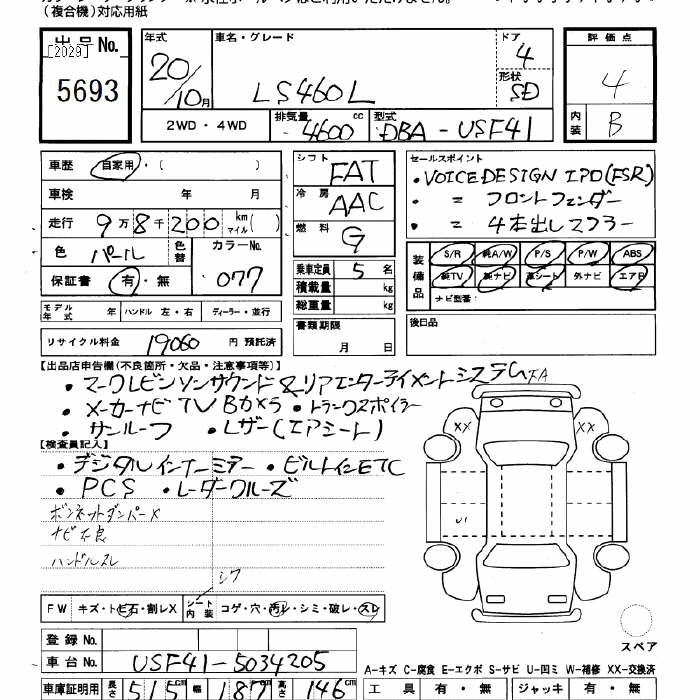 （複合機）対応用紙
出品No.
[2029]
5693
年式 20/10月
車名・グレード LS460L
ドア 4
形状 SD
評価点 4
内装 B
2WD・4WD
排気量 4600cc
型式 DBA-USF41
車歴 自家用・（ ）
車検 年 月
走行 9万8千200 km マイル( )
色 パール
色替
カラーNo. 077
保証書 有・無
シフト FAT
冷房 AAC
燃料 G
乗車定員 5名
積載量 kg
総重量 kg
書類期限 月 日
セールスポイント
・VOICE DESIGN エアロ(FSR)
・ = フロントフェンダー
・ = 4本出しマフラー
装備品 S/R 純A/W P/S P/W ABS
純TV 純ナビ 革シート 外ナビ エアB
ナビ型番：
後日品
モデル年式 年 ハンドル 左・右 ディーラー・並行
リサイクル料金 19060 円 預託済
【出品店申告欄(不良箇所・欠品・注意事項等)】
・マークレビンソンサウンド&リアエンターテイメントシステム
・メーカーナビTVBカメラ ・トランクスポイラー
・サンルーフ ・Lザー(エアシート)
【検査員記入】
・デジタルインナーミラー ・ビルトインETC
・PCS ・レーダークルーズ
ボンネットダンパーX
ナビ不良
ハンドルスレ
シワ
FW キズ・トビ石・割レX
シート内装 コゲ・穴・汚レ・シミ・破レ・スレ
登録No.
車台No. USF41-5034205
車庫証明用 長さ 515cm 幅 187cm 高さ 146cm
XX
XX
U1
スペア
A-キズ C-腐食 E-エクボ S-サビ U-凹ミ W-補修 XX-交換済
工具 有・無 ジャッキ 有・無